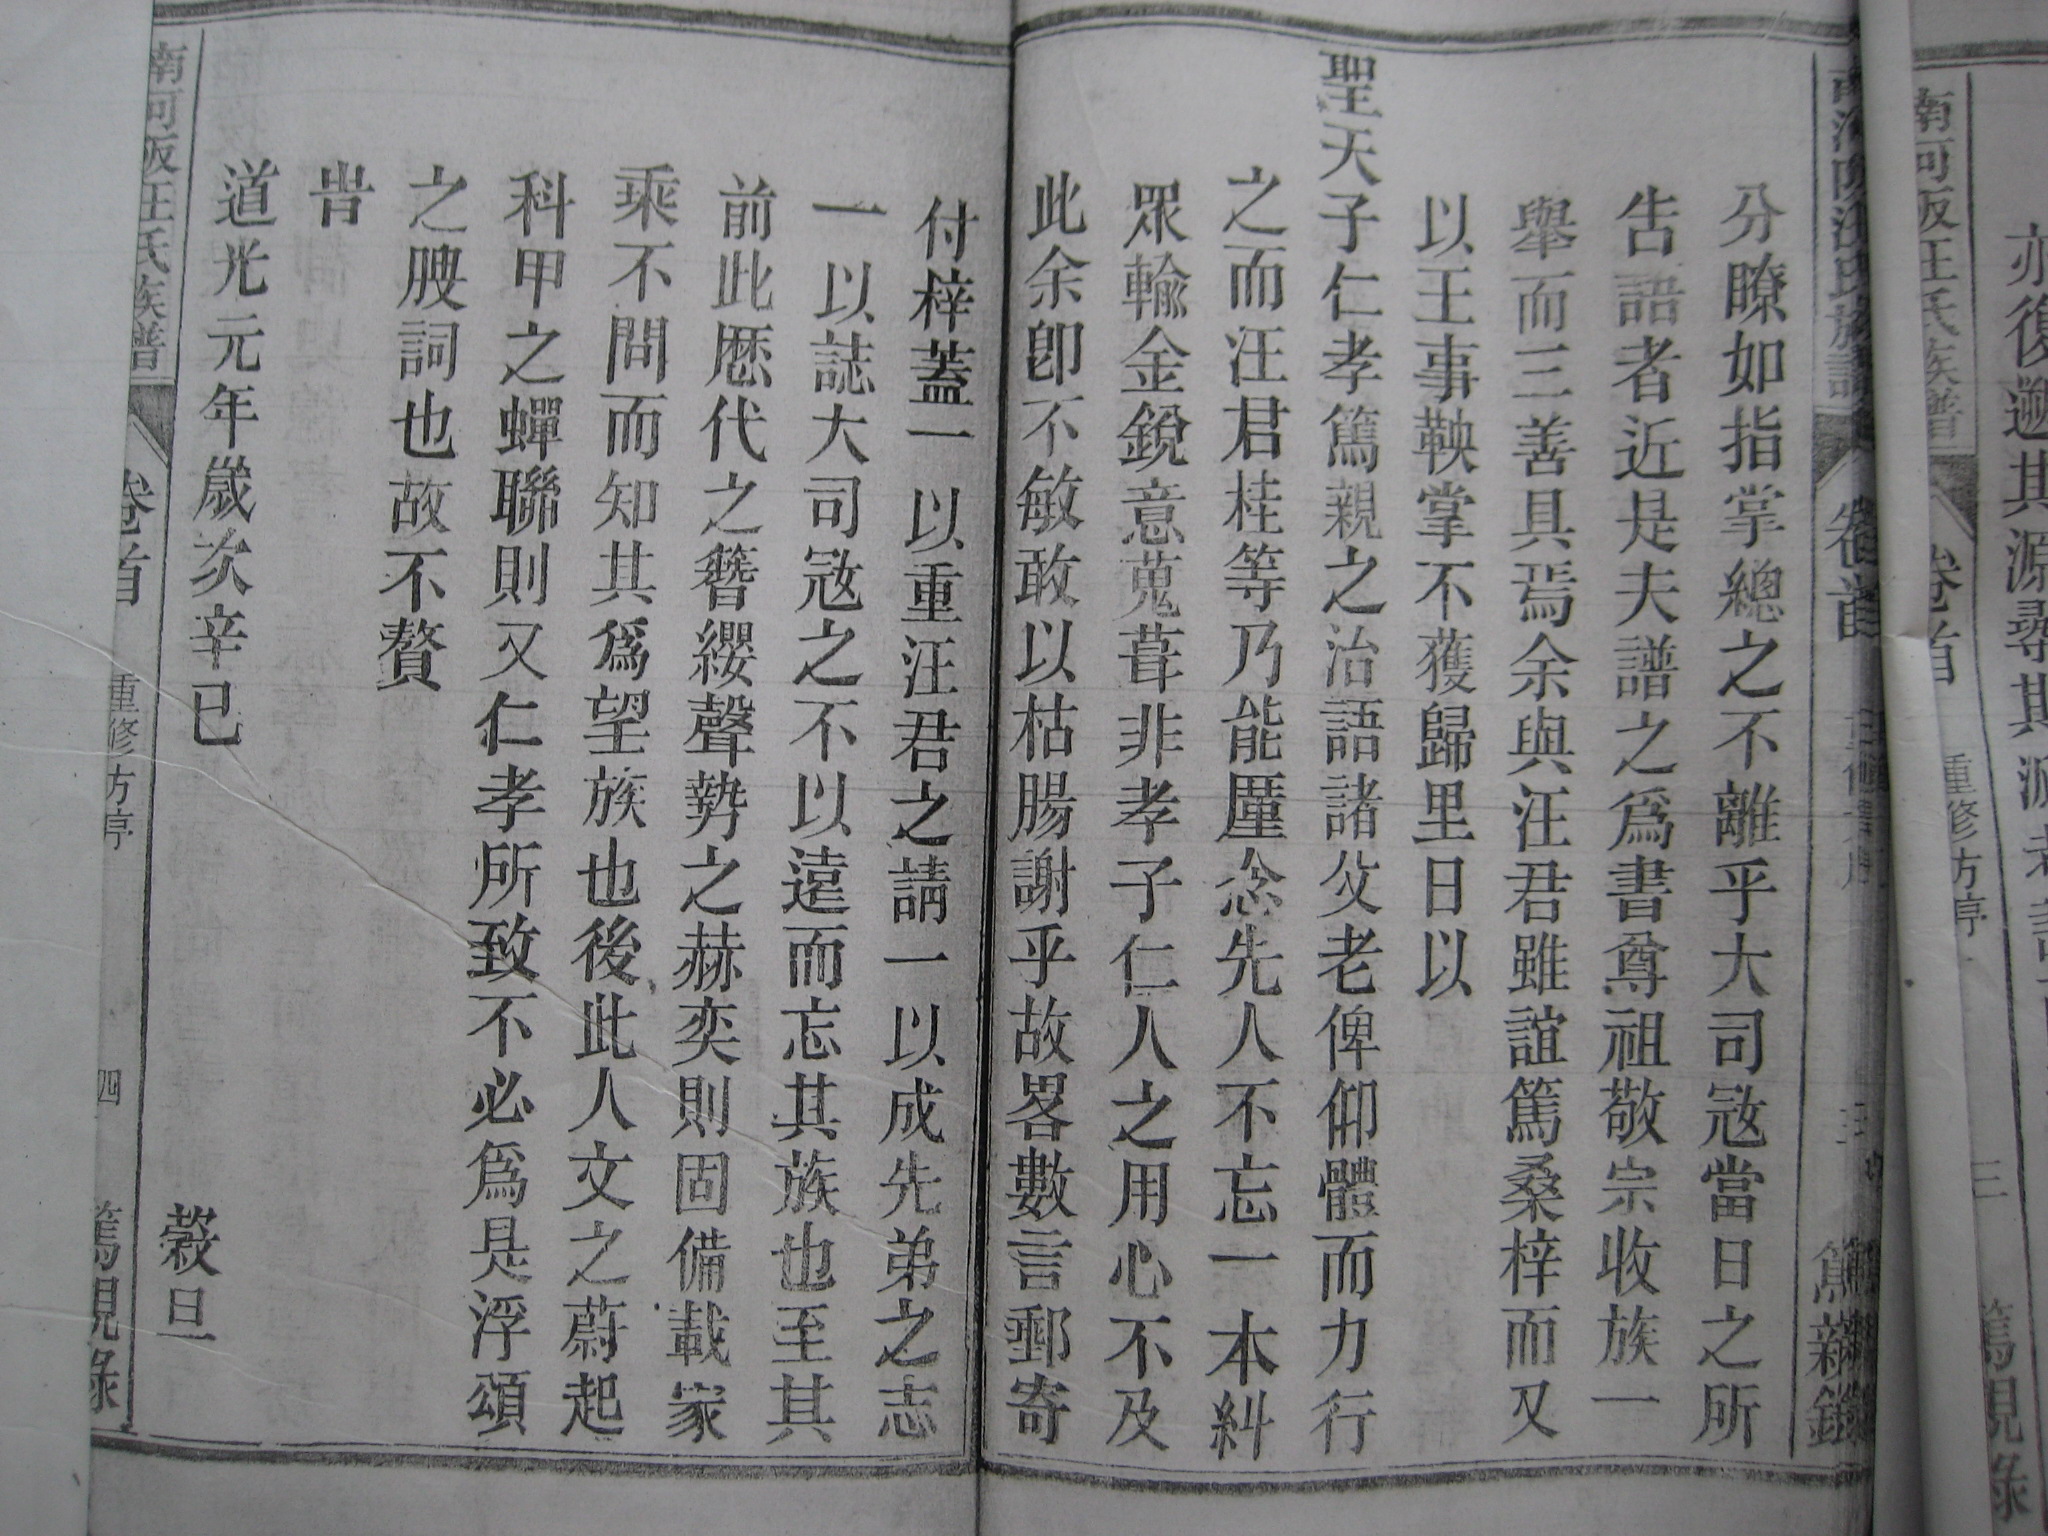 亦復遡其源尋其派
南河阪汪氏族譜 卷首 重修方序 三 篤親錄
南河阪汪氏族譜 卷首
分瞭如指掌總之不離乎大司寇當日之所
吿語者近是夫譜之爲書尊祖敬宗收族一
舉而三善具焉余與汪君雖誼篤桑梓而又
以王事鞅掌不獲歸里日以
聖天子仁孝篤親之治語諸父老俾仰體而力行
之而汪君桂等乃能厪念先人不忘一本糾
眾輸金銳意蒐葺非孝子仁人之用心不及
此余卽不敏敢以枯腸謝乎故畧數言郵寄
付梓蓋一以重汪君之請一以成先弟之志
一以誌大司寇之不以遠而忘其族也至其
前此歷代之簪纓聲勢之赫奕則固備載家
乘不問而知其爲望族也後此人文之蔚起
科甲之蟬聯則又仁孝所致不必爲是浮頌
之腴詞也故不贅
旹
道光元年歲次辛巳 穀旦
南河阪汪氏族譜 卷首 重修方序 四 篤親錄